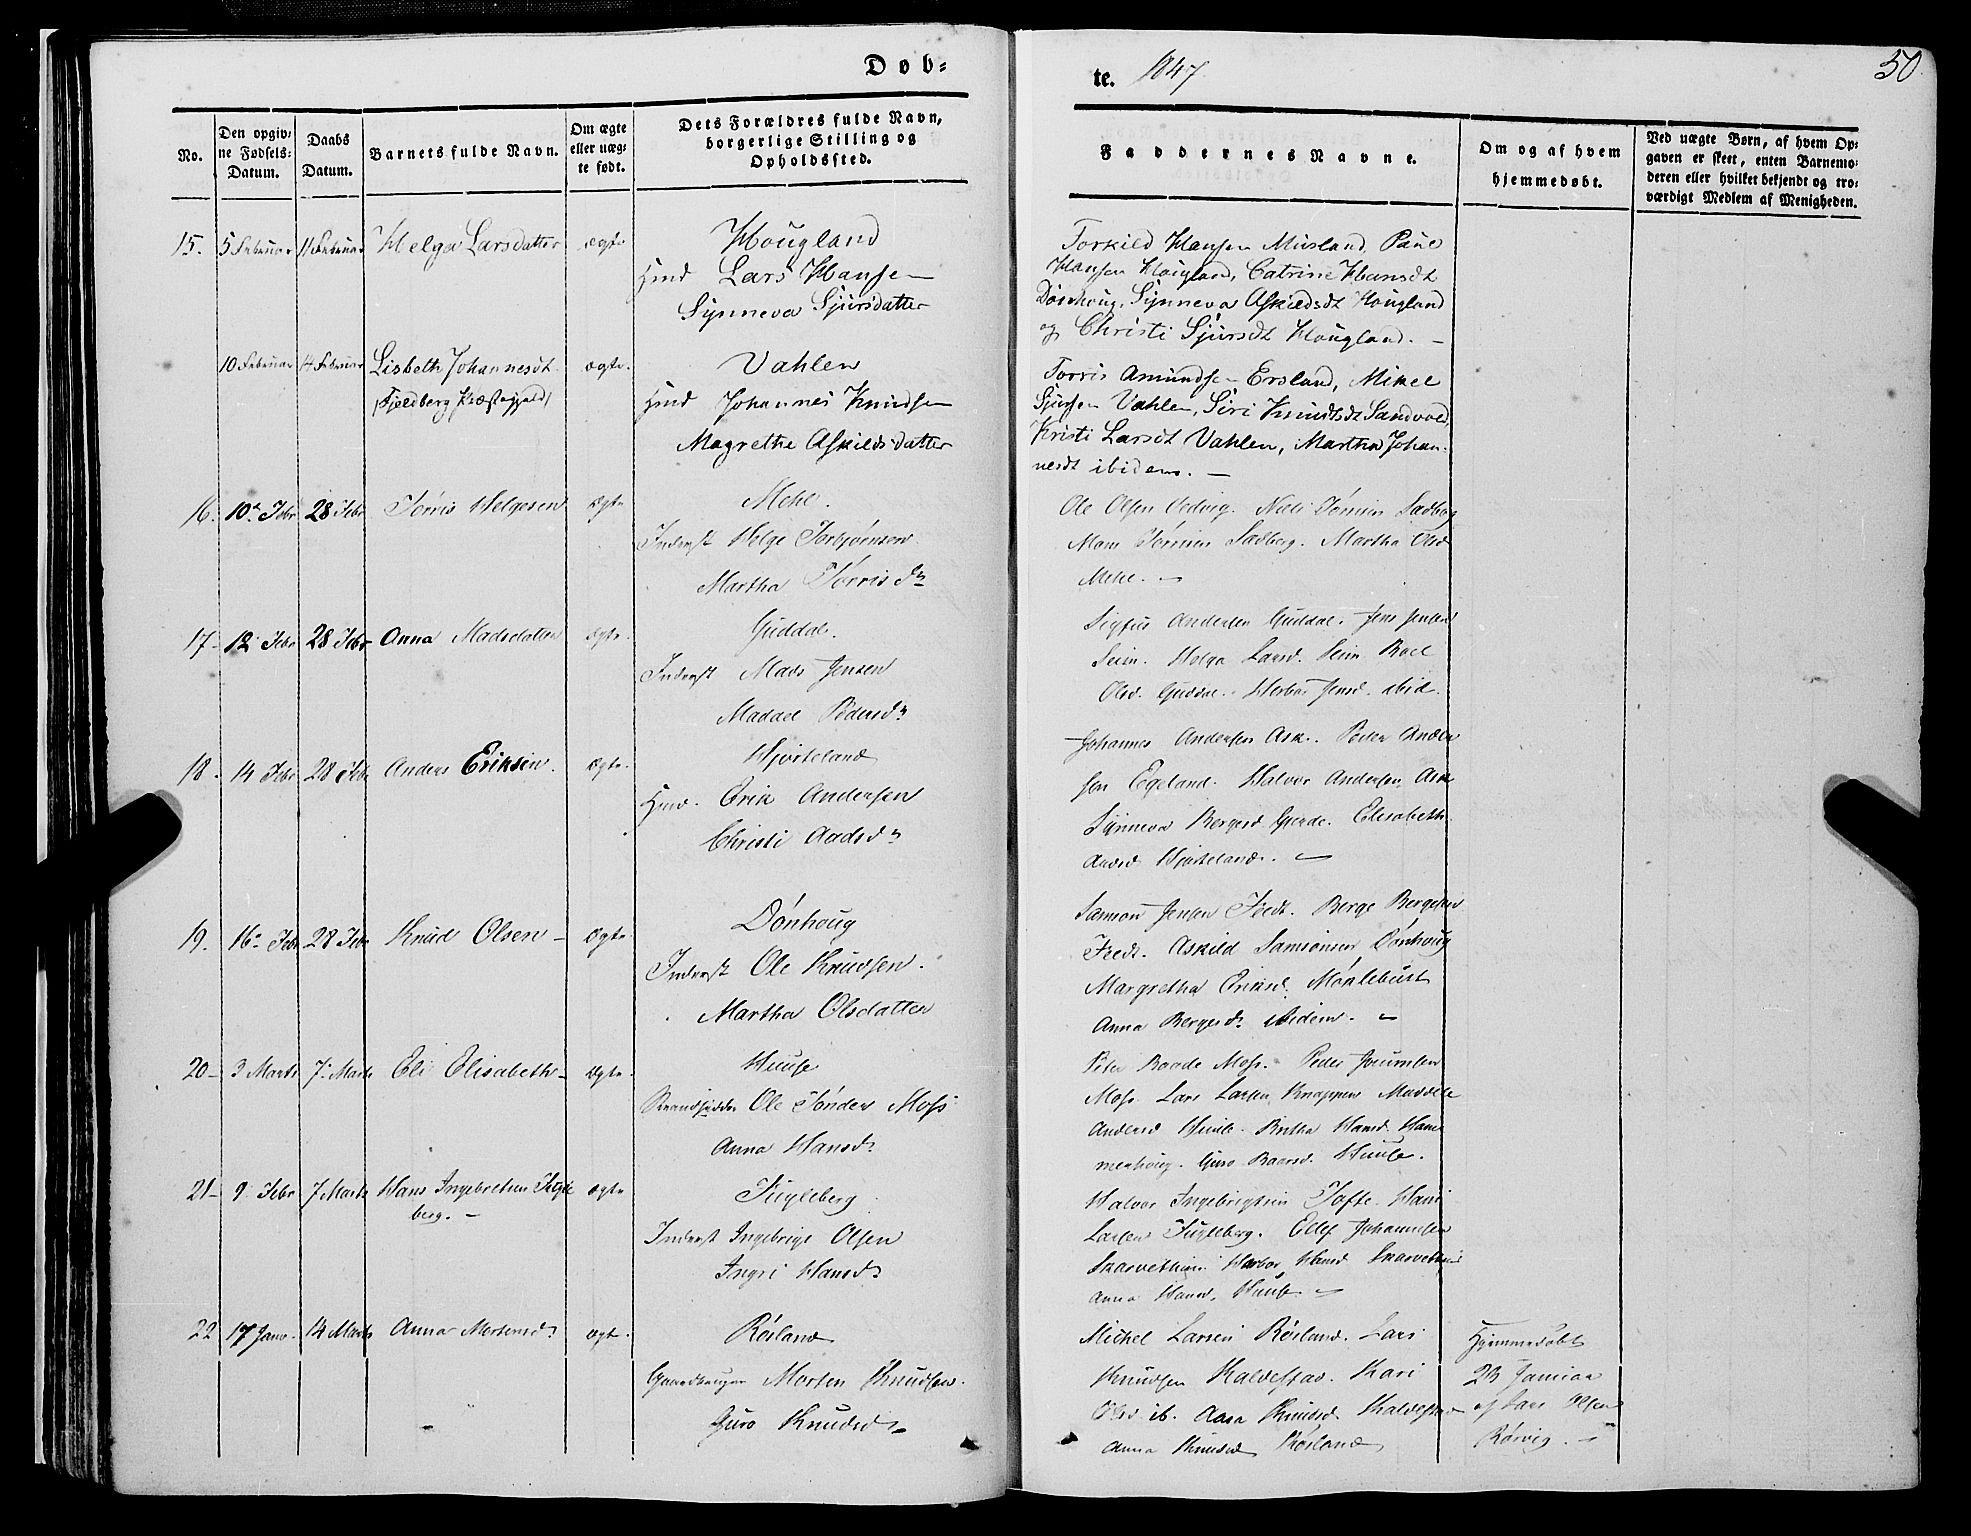 Døb=
te. 1847.
50.
No.
Den opgiv=
ne Fødsels=
Datum.
Daabs
Datum.
Barnets fulde Navn.
Om ægte
eller uæg=
te født.
Dets Forældres fulde Navn,
borgerlige Stilling og
Opholdssted.
Faddernes Navne.
Om og af hvem
hjemmedøbt.
Ved uægte Børn, af hvem Op=
gaven er skeet, enten Barnemo=
deren eller hvilket bekjendt og tro=
værdigt Medlem af Menigheden.
15. 5 Februar 11 Februar Helga Larsdatter ægte
Hougland
Hmd Lars Hansen
Synneva Sjursdatter
Torkild Hansen Musland, Paul
Hansen Hougland, Catrine Hansdt
Dønhoug, Synneva Askildsdt Hougland
og Christi Sjursdt Hougland. —
10 Februar 14 Februar Lisbeth Johannesdt. ægte.
/Fjeldberg Præstegjeld/
Vahlen
Hmd Johannes Knudsen
Magrethe Askildsdatter
Torris Amundsen Ersland, Mikel
Sjursen Vahlen, Siri Knudsdt Sandvold,
Kristi Larsdt Vahlen, Martha Johan-
nesdt ibidem. —
16. 10 Febr 28 Febr Tørris Helgesen ægte
Mehl.
Inderst Helge Torbjørnsen
Martha Tørrisdr
Ole Olsen Vedvig. Niels Tønnes Sadberg
Mons Tønnes Sadberg. Martha Olsd
Mehl. —
17 - 12 Febr 28 Febr Anna Madsdatter ægte.
Guddal.
Inderst Mads Jensen
Maddel Pedersdr
Sigfus Andersen Guddal. Jens Jensen
Seim. Helga Larsd. Seim Boel
Olsd. Guddal. Herbor Jensd. ibid.
18 - 14 Febr 28 Febr Anders Eriksen. ægte.
Hjorteland
Hmd. Erik Andersen
Christi Aadsdr
Johannes Andersen Ask. Peder Ander
sen Egeland. Halvor Andersen Ask
Synneva Bergesd Gjerde. Elisabeth
Aadsd Hjorteland. —
19. 16 Febr 28 Febr Knud Olsen — ægte
Dønhoug
Inderst Ole Knudsen.
Martha Olsdatter
Samson Jensen Feet. Berge Bergesen
Feet. Askild Samsonsen Dønhoug
Margretha Eriksd. Møklebust
Anna Bergesd. ibidem. —
20 - 3 Marts 7 Marts Eli Elisabeth — ægte.
Huuse
Strandsidder Ole Tønder Moss
Anna Hansdr
Peter Baade Moss. Peder
Moss. Lars Larsen Knappen Maddele
Andersd Huuse. Britha Hansd. Ham
merhoug. Guro Baarsd. Huuse.
21 - 9 Febr 7 Marts Hans Ingebretsen Fugle ægte
berg. —
Fugleberg
Inderst Ingebrigt Olsen
Ingri Hansdr
Halvor Ingebrigtsen Tofte. Hans
Larsen Fugleberg. Ellef Johannesen
Skarvetun. Herbor Hansd Skarvetun
Anna Hansd. Huuse —
22 17 Janu. 14 Marts Anna Mortensdr ægte.
Røsland
Gaardbruger Morten Knudsen.
Guro Knudsdr
Michel Larsen Røsland. Lars
Knudsen Haldestad. Kari
Olsd ib. Aasa Knudsd Haldestad
Anna Knudsd Røsland
Hjemmedøbt
23 Januar
af Lars Olsen
Rørvig. —